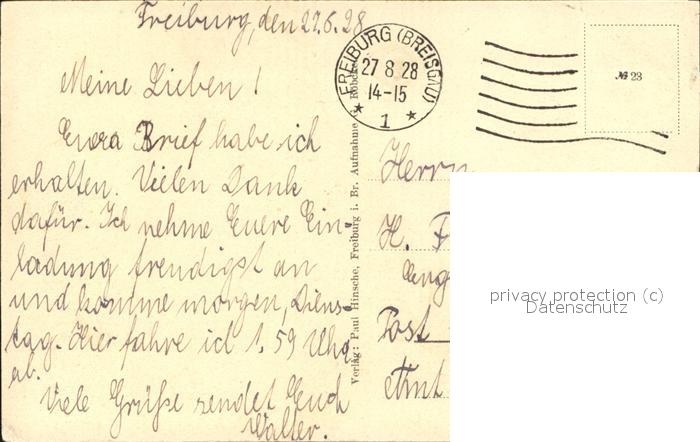 Freiburg, den 27.8.28
Meine Lieben!
Euern Brief habe ich
erhalten. Vielen Dank
dafür. Ich nehme Euere Ein-
ladung freudigst an
und komme morgen, Diens-
tag. Hier fahre ich 1.59 Uhr
ab.
Viele Grüße sendet Euch
Walter.
Verlag: Paul Hinsche, Freiburg i. Br. Aufnahme
FREIBURG (BREISGAU)
27 8 28
14-15
1
№ 23
Herrn
H. F
Post
Amt
privacy protection (c)
Datenschutz